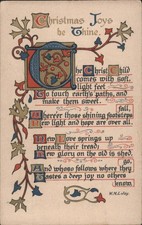 Christmas Joys
be Thine.
The Christ Child
comes with soft,
light feet
To touch earth's paths, and
make them sweet.
fall,
Where'er those shining footsteps
New light and hope are over all.
New Love springs up
beneath their tread;
New glory on the old is shed.
go,
And whoso follows where they
Tastes a deep joy no others
know.